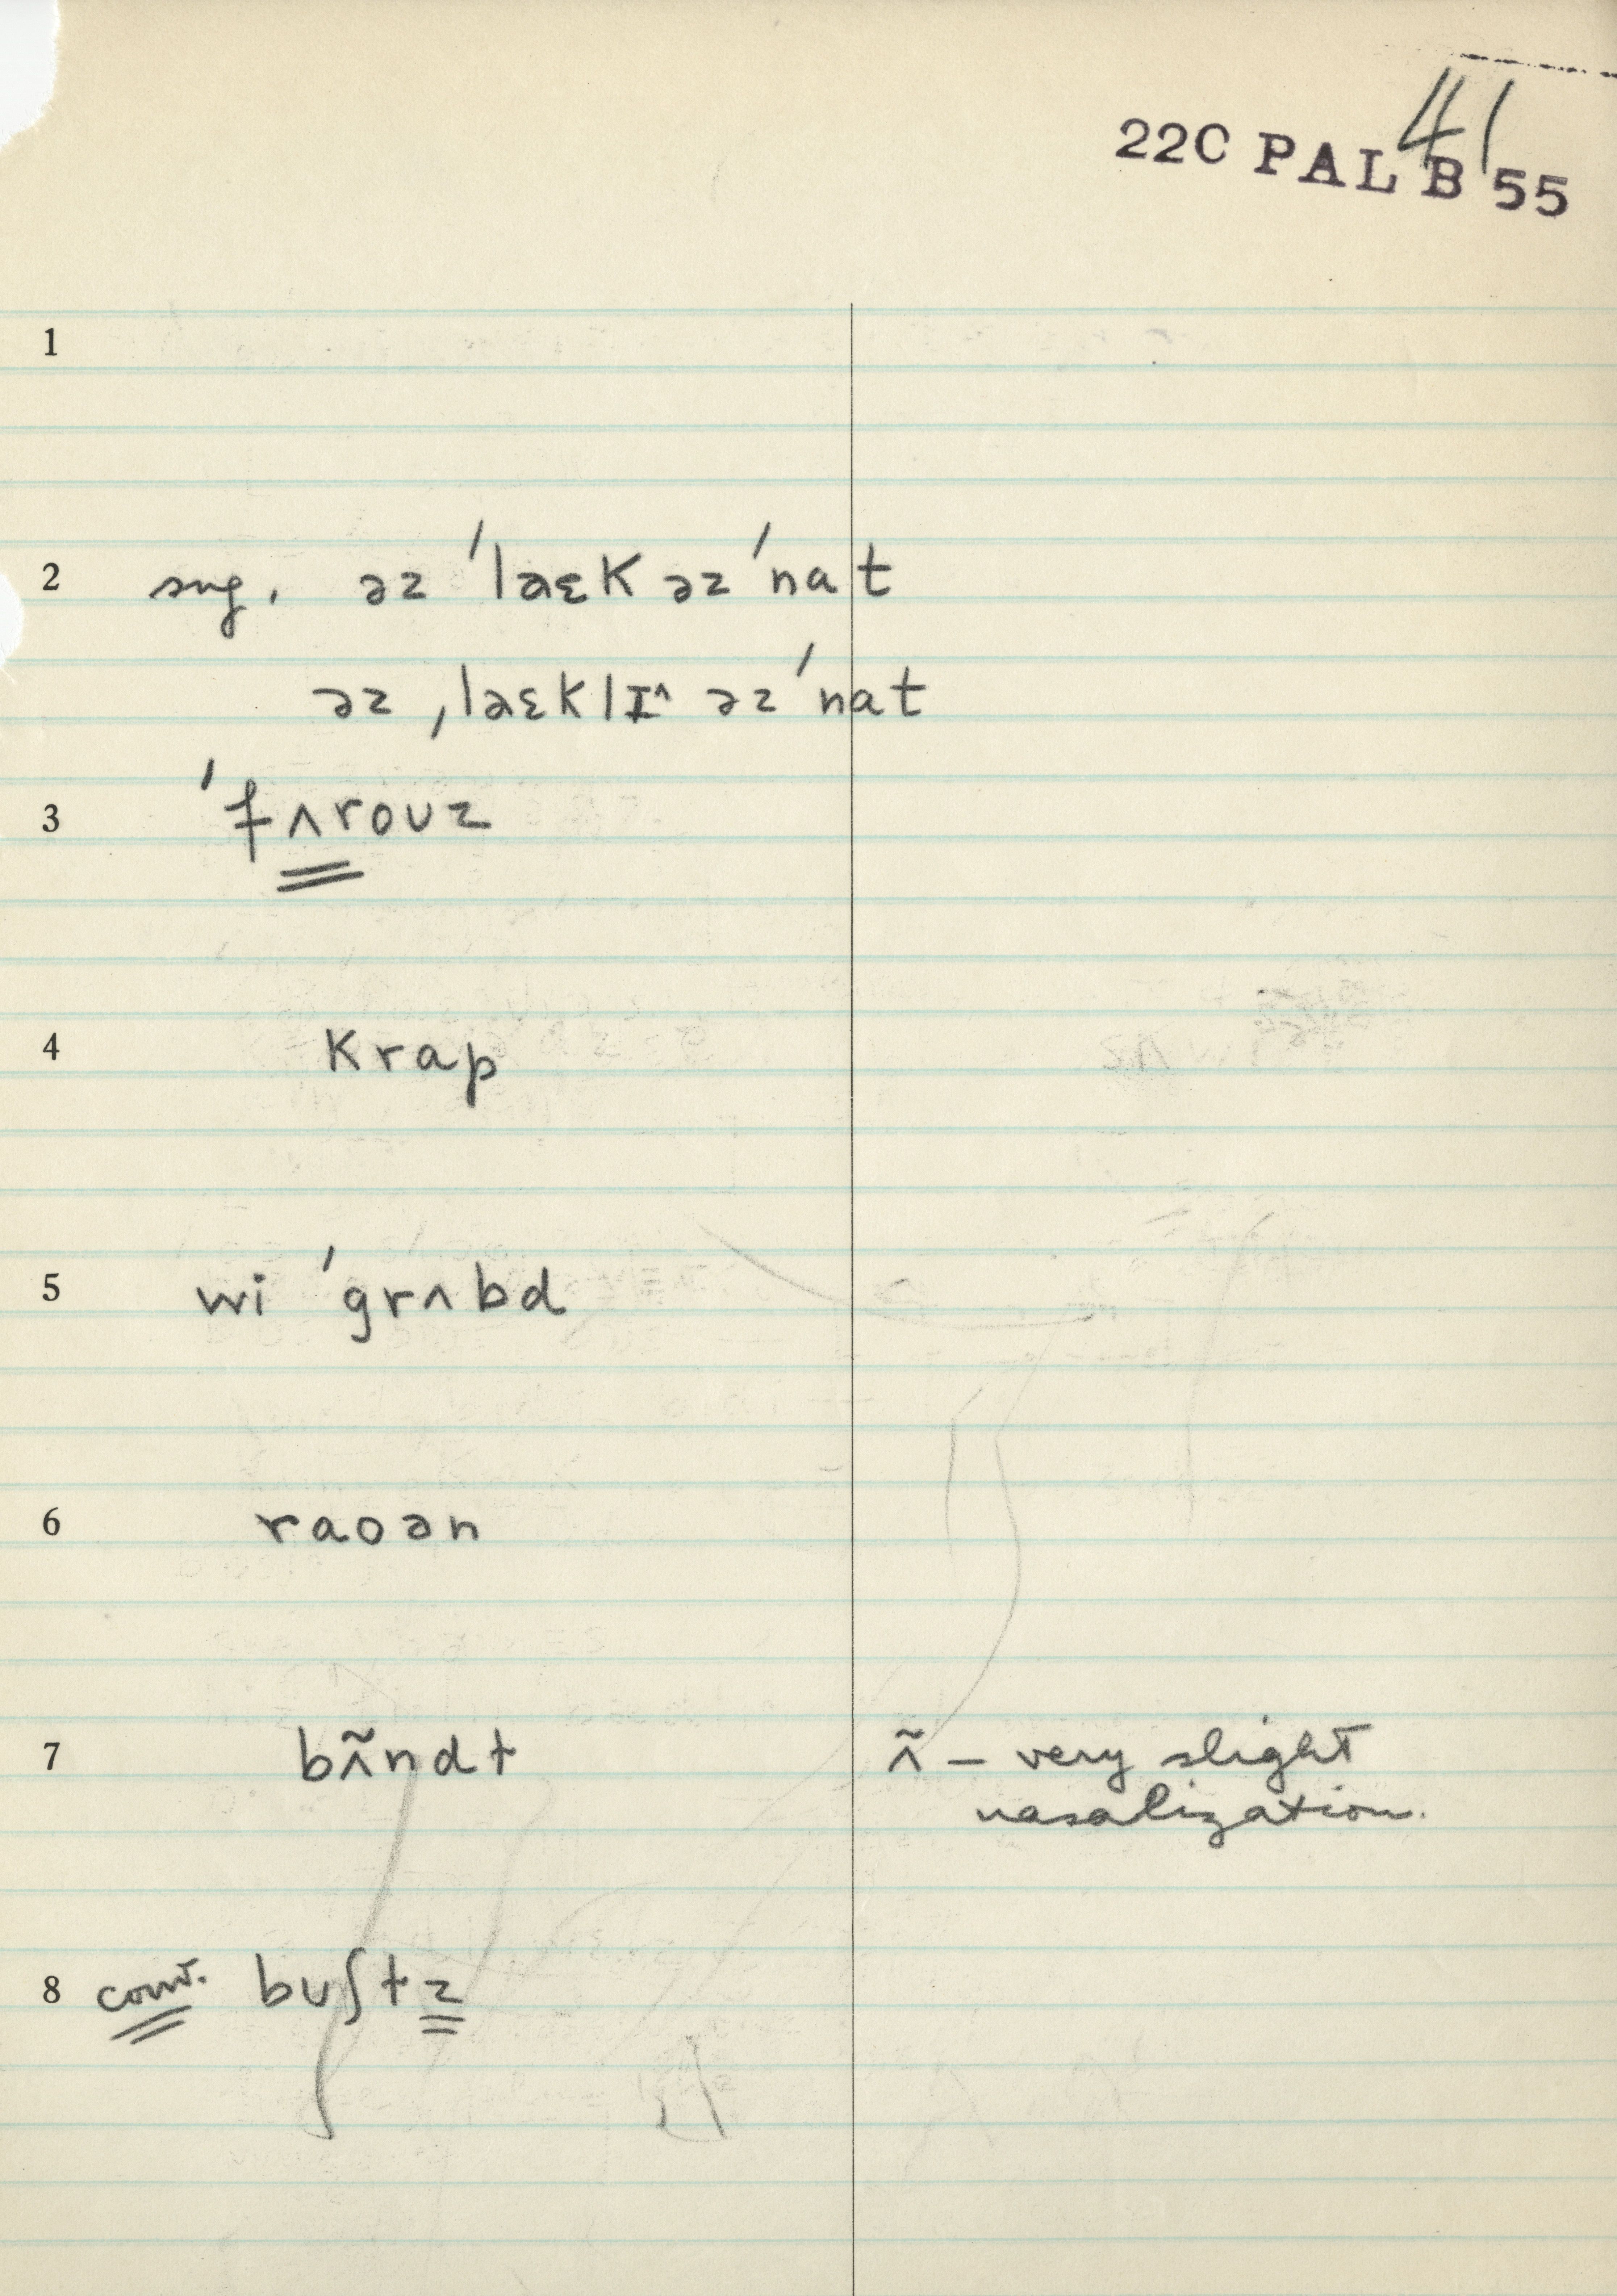 41
22C PAL B 55
1
2 sug. əz ˈlaɛk əz ˈnat
əz ˌlaɛklɪ^ əz ˈnat
3 ˈfʌroʊz
4 krap
5 wi ˈgrʌbd
6 raoən
7 bʌ̃ndt ʌ̃ – very slight
nasalization.
8 conv. bʊʃtz